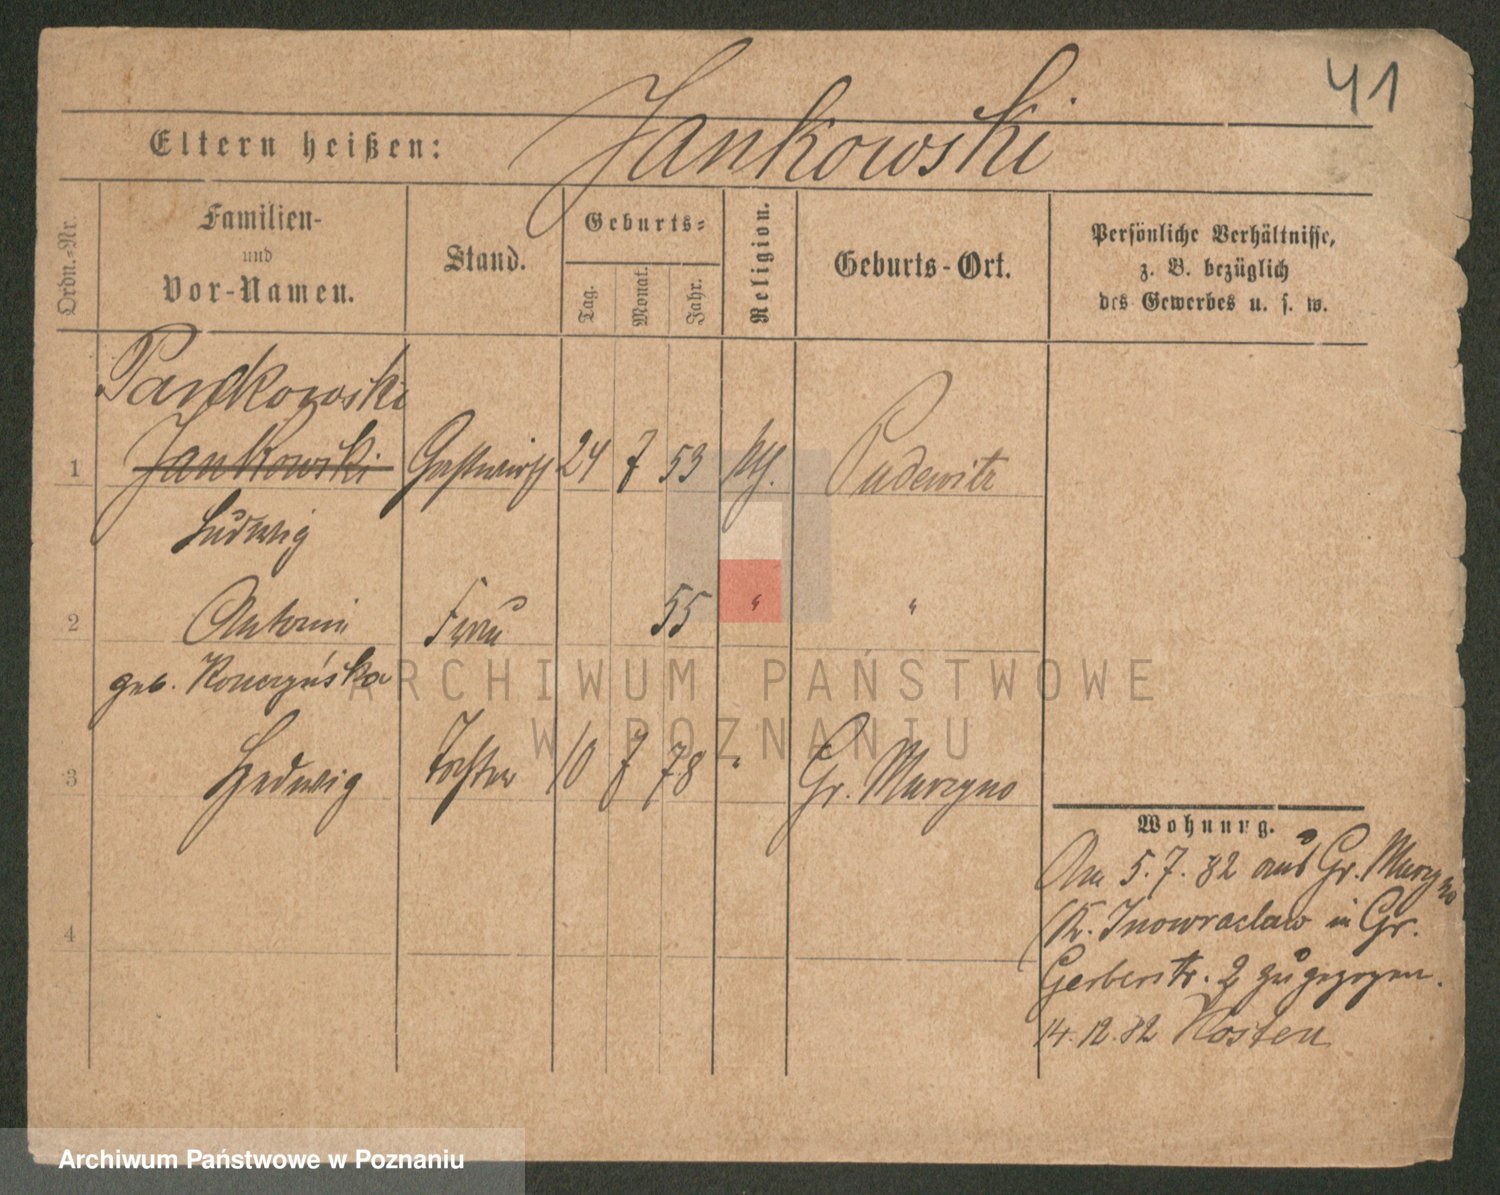 41
Eltern heißen: Jankowski
Ordn.-Nr.
Familien-
und
Vor-Namen.
Stand.
Geburts-
Tag.
Monat.
Jahr.
Religion.
Geburts-Ort.
Persönliche Verhältnisse,
z. B. bezüglich
des Gewerbes u. s. w.
Pankowski
1 Jankowski Gastwirth 24 7 53 kth. Pudewitz
Ludwig
2 Antonie Frau 55 " "
geb.
3 Hedwig Tochter 10 7 78 " Gr. Murzyno
4
Wohnung.
Am 5.7.82 aus Gr. Murzyno
Kr. Inowraclaw in Gr.
Gerberstr. 2 zugezogen.
14.12.82 Kosten
ARCHIWUM PAŃSTWOWE
W POZNANIU
Archiwum Państwowe w Poznaniu